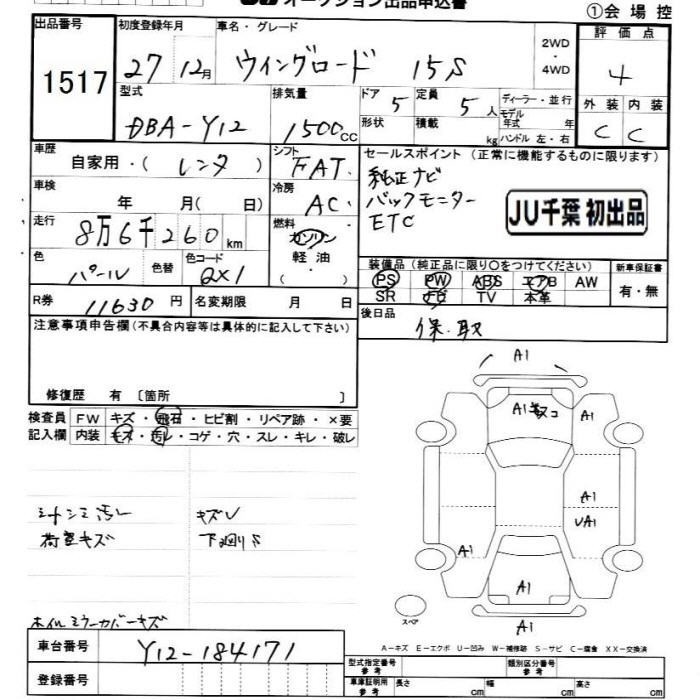 オークション出品申込書
①会場控
出品番号
1517
初度登録年月
27 12月
車名・グレード
ウイングロード 15S
2WD
・
4WD
評価点
4
外装 内装
C C
型式
DBA-Y12
排気量
1500cc
ドア 5
定員 5人
ディーラー・並行
モデル年式 年
形状
積載 kg
ハンドル 左・右
車歴
自家用・(レンタ)
シフト
FAT
セールスポイント(正常に機能するものに限ります)
純正ナビ
バックモニター
ETC
JU千葉 初出品
車検
年 月( 日)
冷房
AC
走行
8万6千260km
燃料
ガソリン
軽油
色
パール
色替
色コード
QX1
装備品(純正品に限り○をつけてください)
新車保証書
PS PW ABS エアB AW
有・無
SR ナビ TV 本革
R券 11630円
名変期限 月 日
後日品
保・取
注意事項申告欄(不具合内容等は具体的に記入して下さい)
修復歴 有〔箇所 〕
検査員記入欄
FW キズ・飛石・ヒビ割・リペア跡・×要
内装 キズ・汚レ・コゲ・穴・スレ・キレ・破レ
シートシミ汚レ キズU
荷室キズ 下廻りS
ホイルミラーカバーキズ
A1
A1
A1
A1
UA1
A1
A1
A1
スペア
A-キズ E-エクボ U-凹み W-補修跡 S-サビ C-腐食 XX-交換済
車台番号
Y12-184171
登録番号
型式指定番号 参考
類別区分番号 参考
車庫証明用 参考
長さ cm
幅 cm
高さ cm